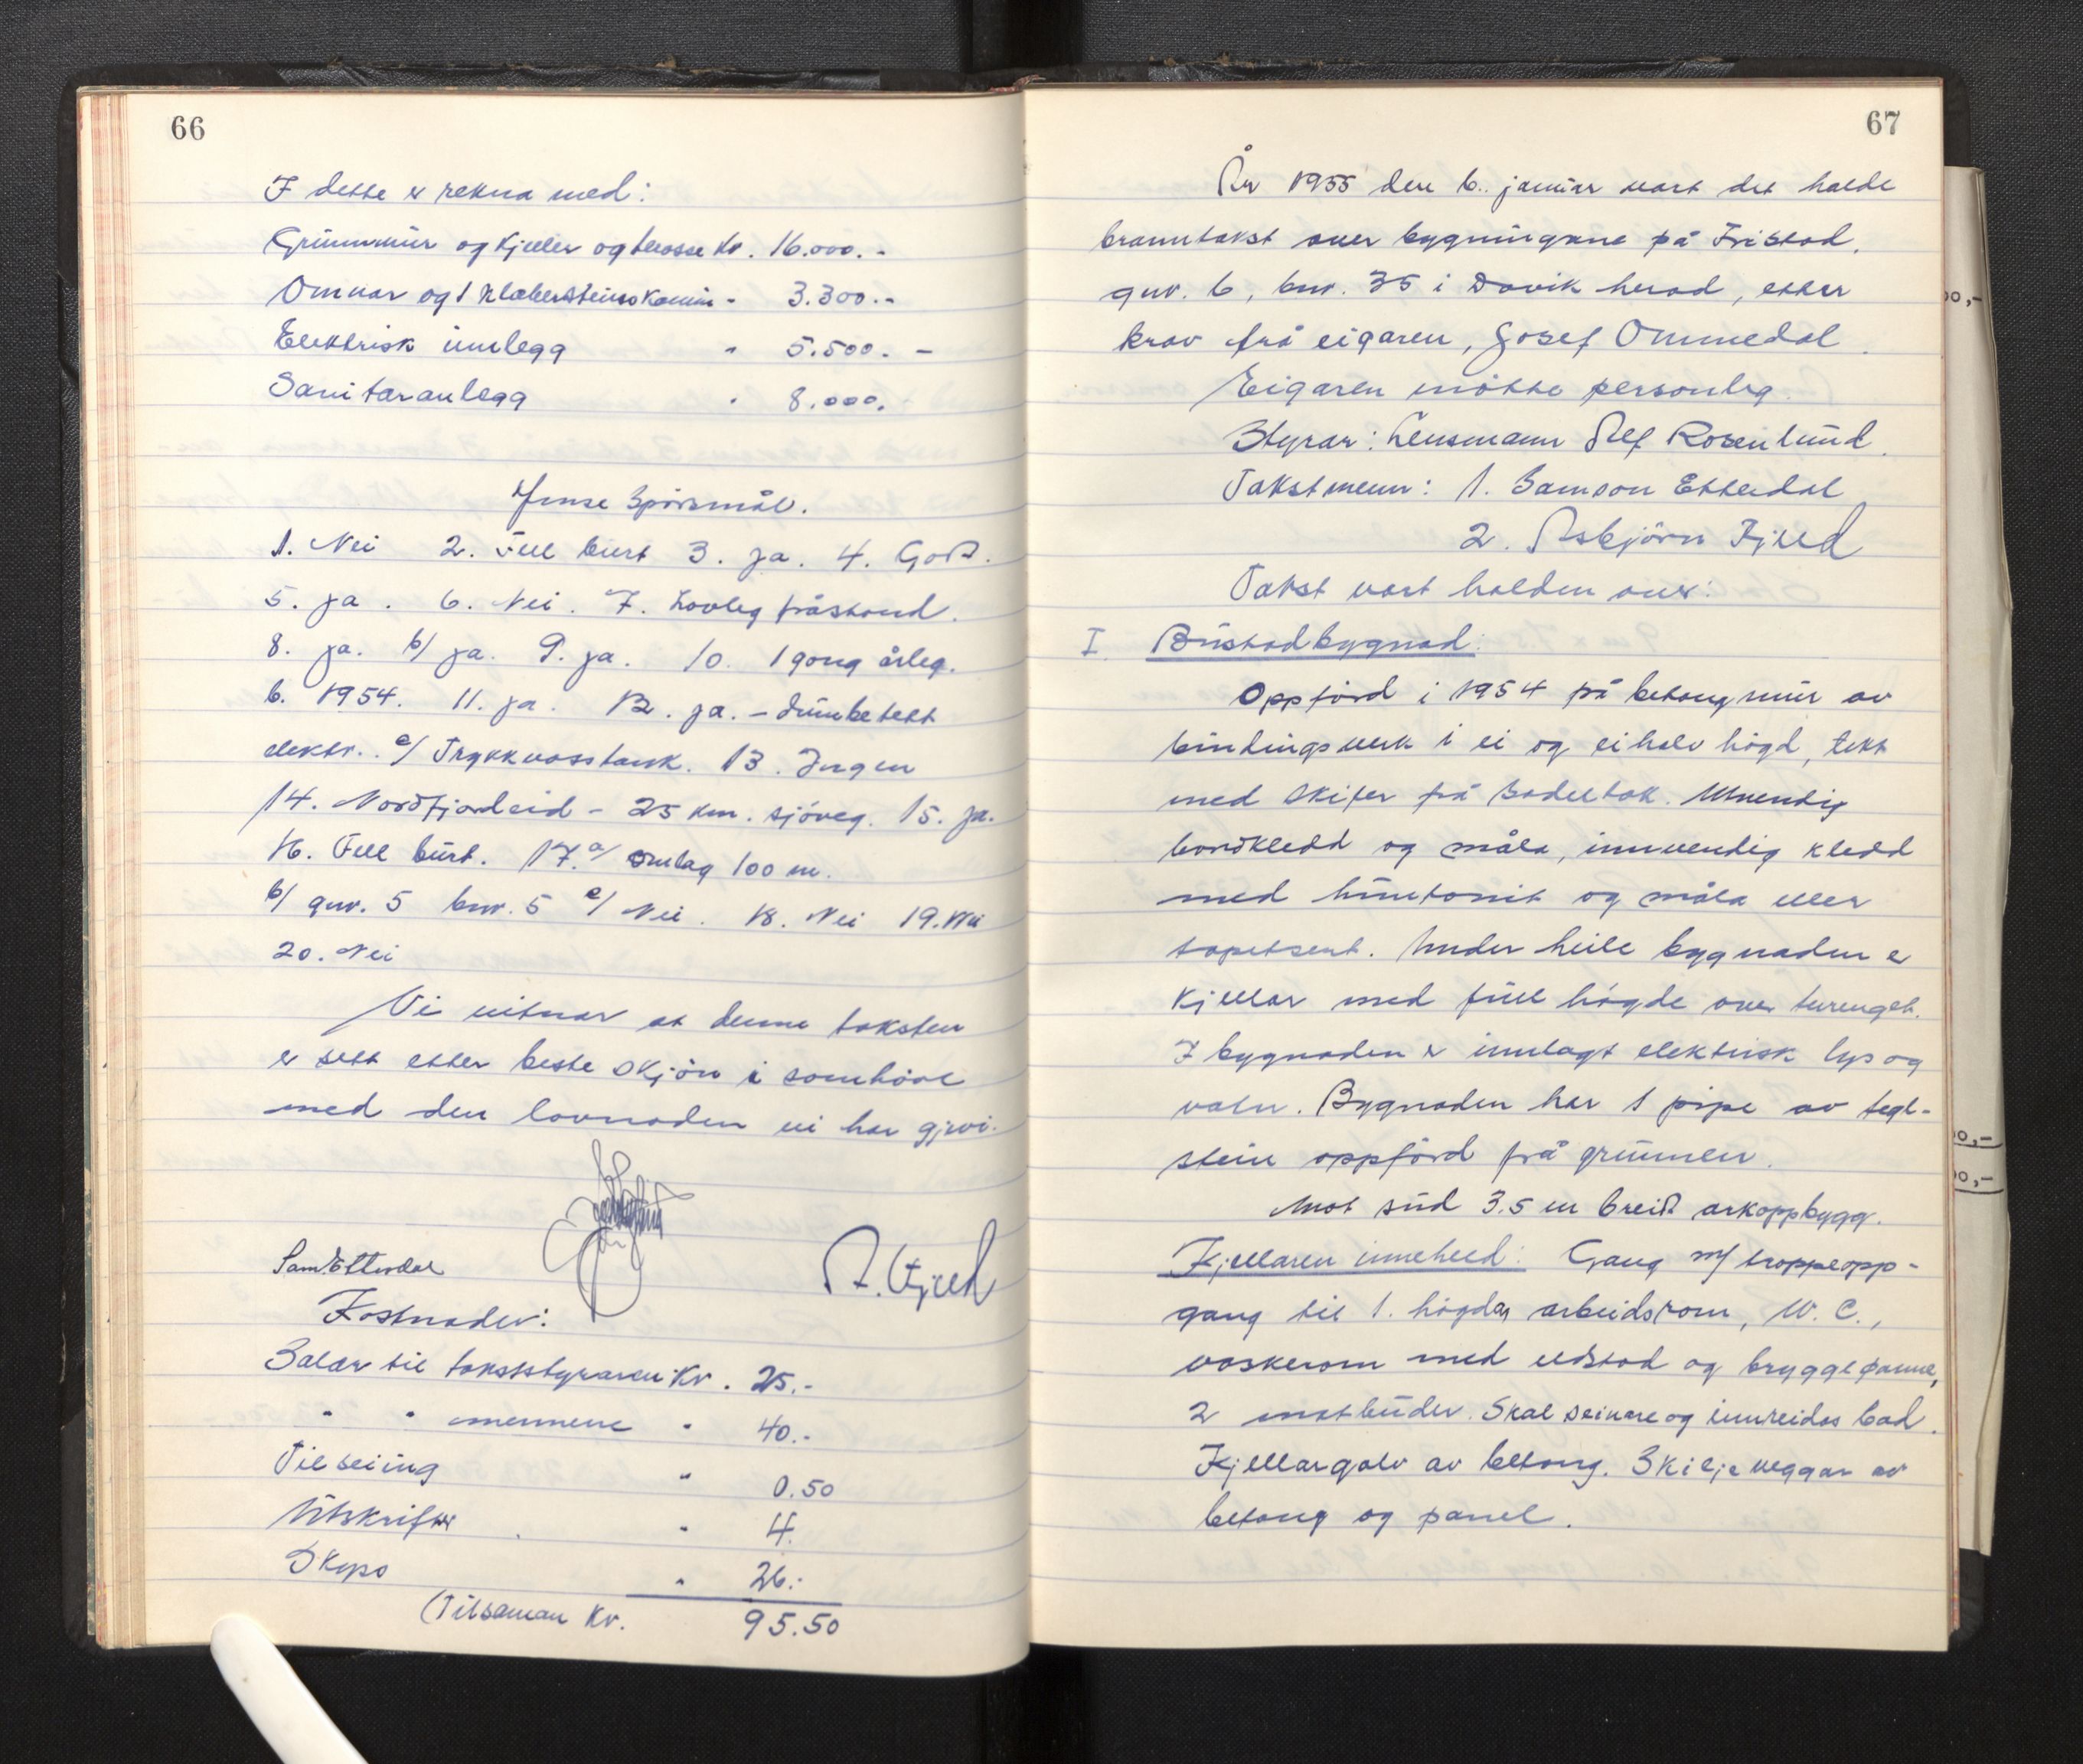 66
I dette er rekna med:
Grunnmur og kjeller og trosse kr. 16.000.-
Omnar og 1 klebersteinskamin " 3.300.-
Elektrisk innlegg " 5.500.-
Sanitæranlegg " 8.000.
Ymse spörsmål.
1. Nei 2. Fell burt 3. ja. 4. God.
5. ja. 6. Nei. 7. Lovleg fråstand.
8. ja. b/ ja. 9. ja. 10. 1 gong årleg.
b. 1954. 11. ja. 12. ja. -
elektr.. c/ Trykkvasstank. 13. Ingen
14. Nordfjordeid - 25 km. sjöveg. 15. ja.
16. Fell burt. 17. a/ omlag 100 m.
b/ gnr. 5 bnr. 5 c/ Nei. 18. Nei 19. Nei
20. Nei
Vi vitnar at denne taksten
er sett etter beste skjön i samhöve
med den lovnaden vi har gjevi.
Sam. Etterdal
A. Fjeld
Kostnader:
Salær til takststyraren Kr. 25.-
" " mennene " 40.-
Tilseiing " 0.50
Utskrifter " 4.
Skyss " 26.-
Tilsaman Kr. 95.50
67
År 1955 den 6. januar vart det halde
branntakst over bygningane på Fristad,
gnr. 6, bnr. 35 i Davik herad, etter
krav frå eigaren, Josef Ommedal.
Eigaren mötte personleg.
Styrar: Lensmann Alf Rosenlund.
Takstmenn: 1. Samson Etterdal
2. Asbjörn Fjeld
Takst vart halden over:
I. Bustadbygnad:
Oppförd i 1954 på betongmur av
bindingsverk i ei og ei halv högd, tekt
med skifer på sadeltak. Utvendig
bordkledd og måla, innvendig kledd
med huntonit og måla eller
tapetsert. Under heile bygnaden er
kjellar med full högde over terrenget.
I bygnaden er innlagt elektrisk lys og
vatn. Bygnaden har 1 pipe av tegl-
stein oppförd frå grunnen.
Mot sud 3.5 m breid arkoppbygg.
Kjellaren inneheld: Gang m/ trappeopp-
gang til 1. högda, arbeidsrom, W.C.,
vaskerom med eldstad og bryggepanne,
2 matbuder. Skal seinare og innreidas bad.
Kjellargolv av betong. Skiljeveggar av
betong og panel.